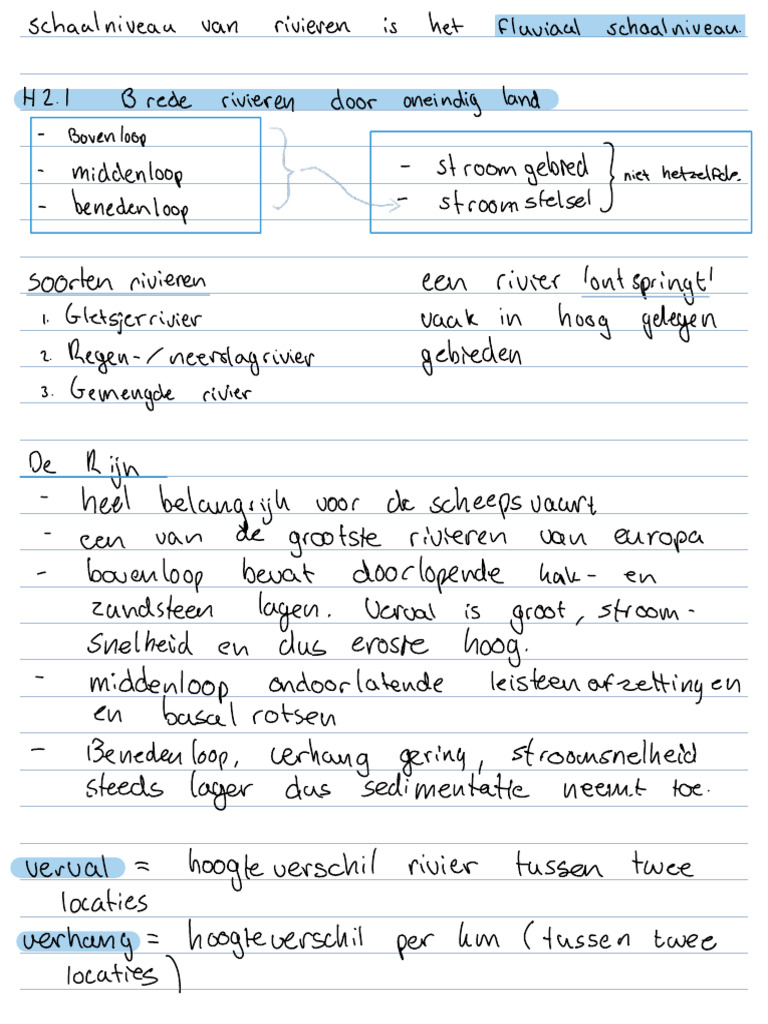 schaalniveau van rivieren is het fluviaal schaalniveau.
H2.1 Brede rivieren door oneindig land
- Bovenloop
- middenloop
- benedenloop
- stroomgebied
- stroomstelsel
niet hetzelfde.
soorten rivieren
1. Gletsjerrivier
2. Regen-/neerslagrivier
3. Gemengde rivier
een rivier 'ontspringt'
vaak in hoog gelegen
gebieden
De Rijn
- heel belangrijk voor de scheepsvaart
- een van de grootste rivieren van europa
- bovenloop bevat doorlopende kalk- en
zandsteen lagen. Verval is groot, stroom-
snelheid en dus erosie hoog.
- middenloop ondoorlatende leisteenafzettingen
en basaltrotsen
- Benedenloop, verhang gering, stroomsnelheid
steeds lager dus sedimentatie neemt toe.
verval = hoogteverschil rivier tussen twee
locaties
verhang = hoogteverschil per km (tussen twee
locaties)